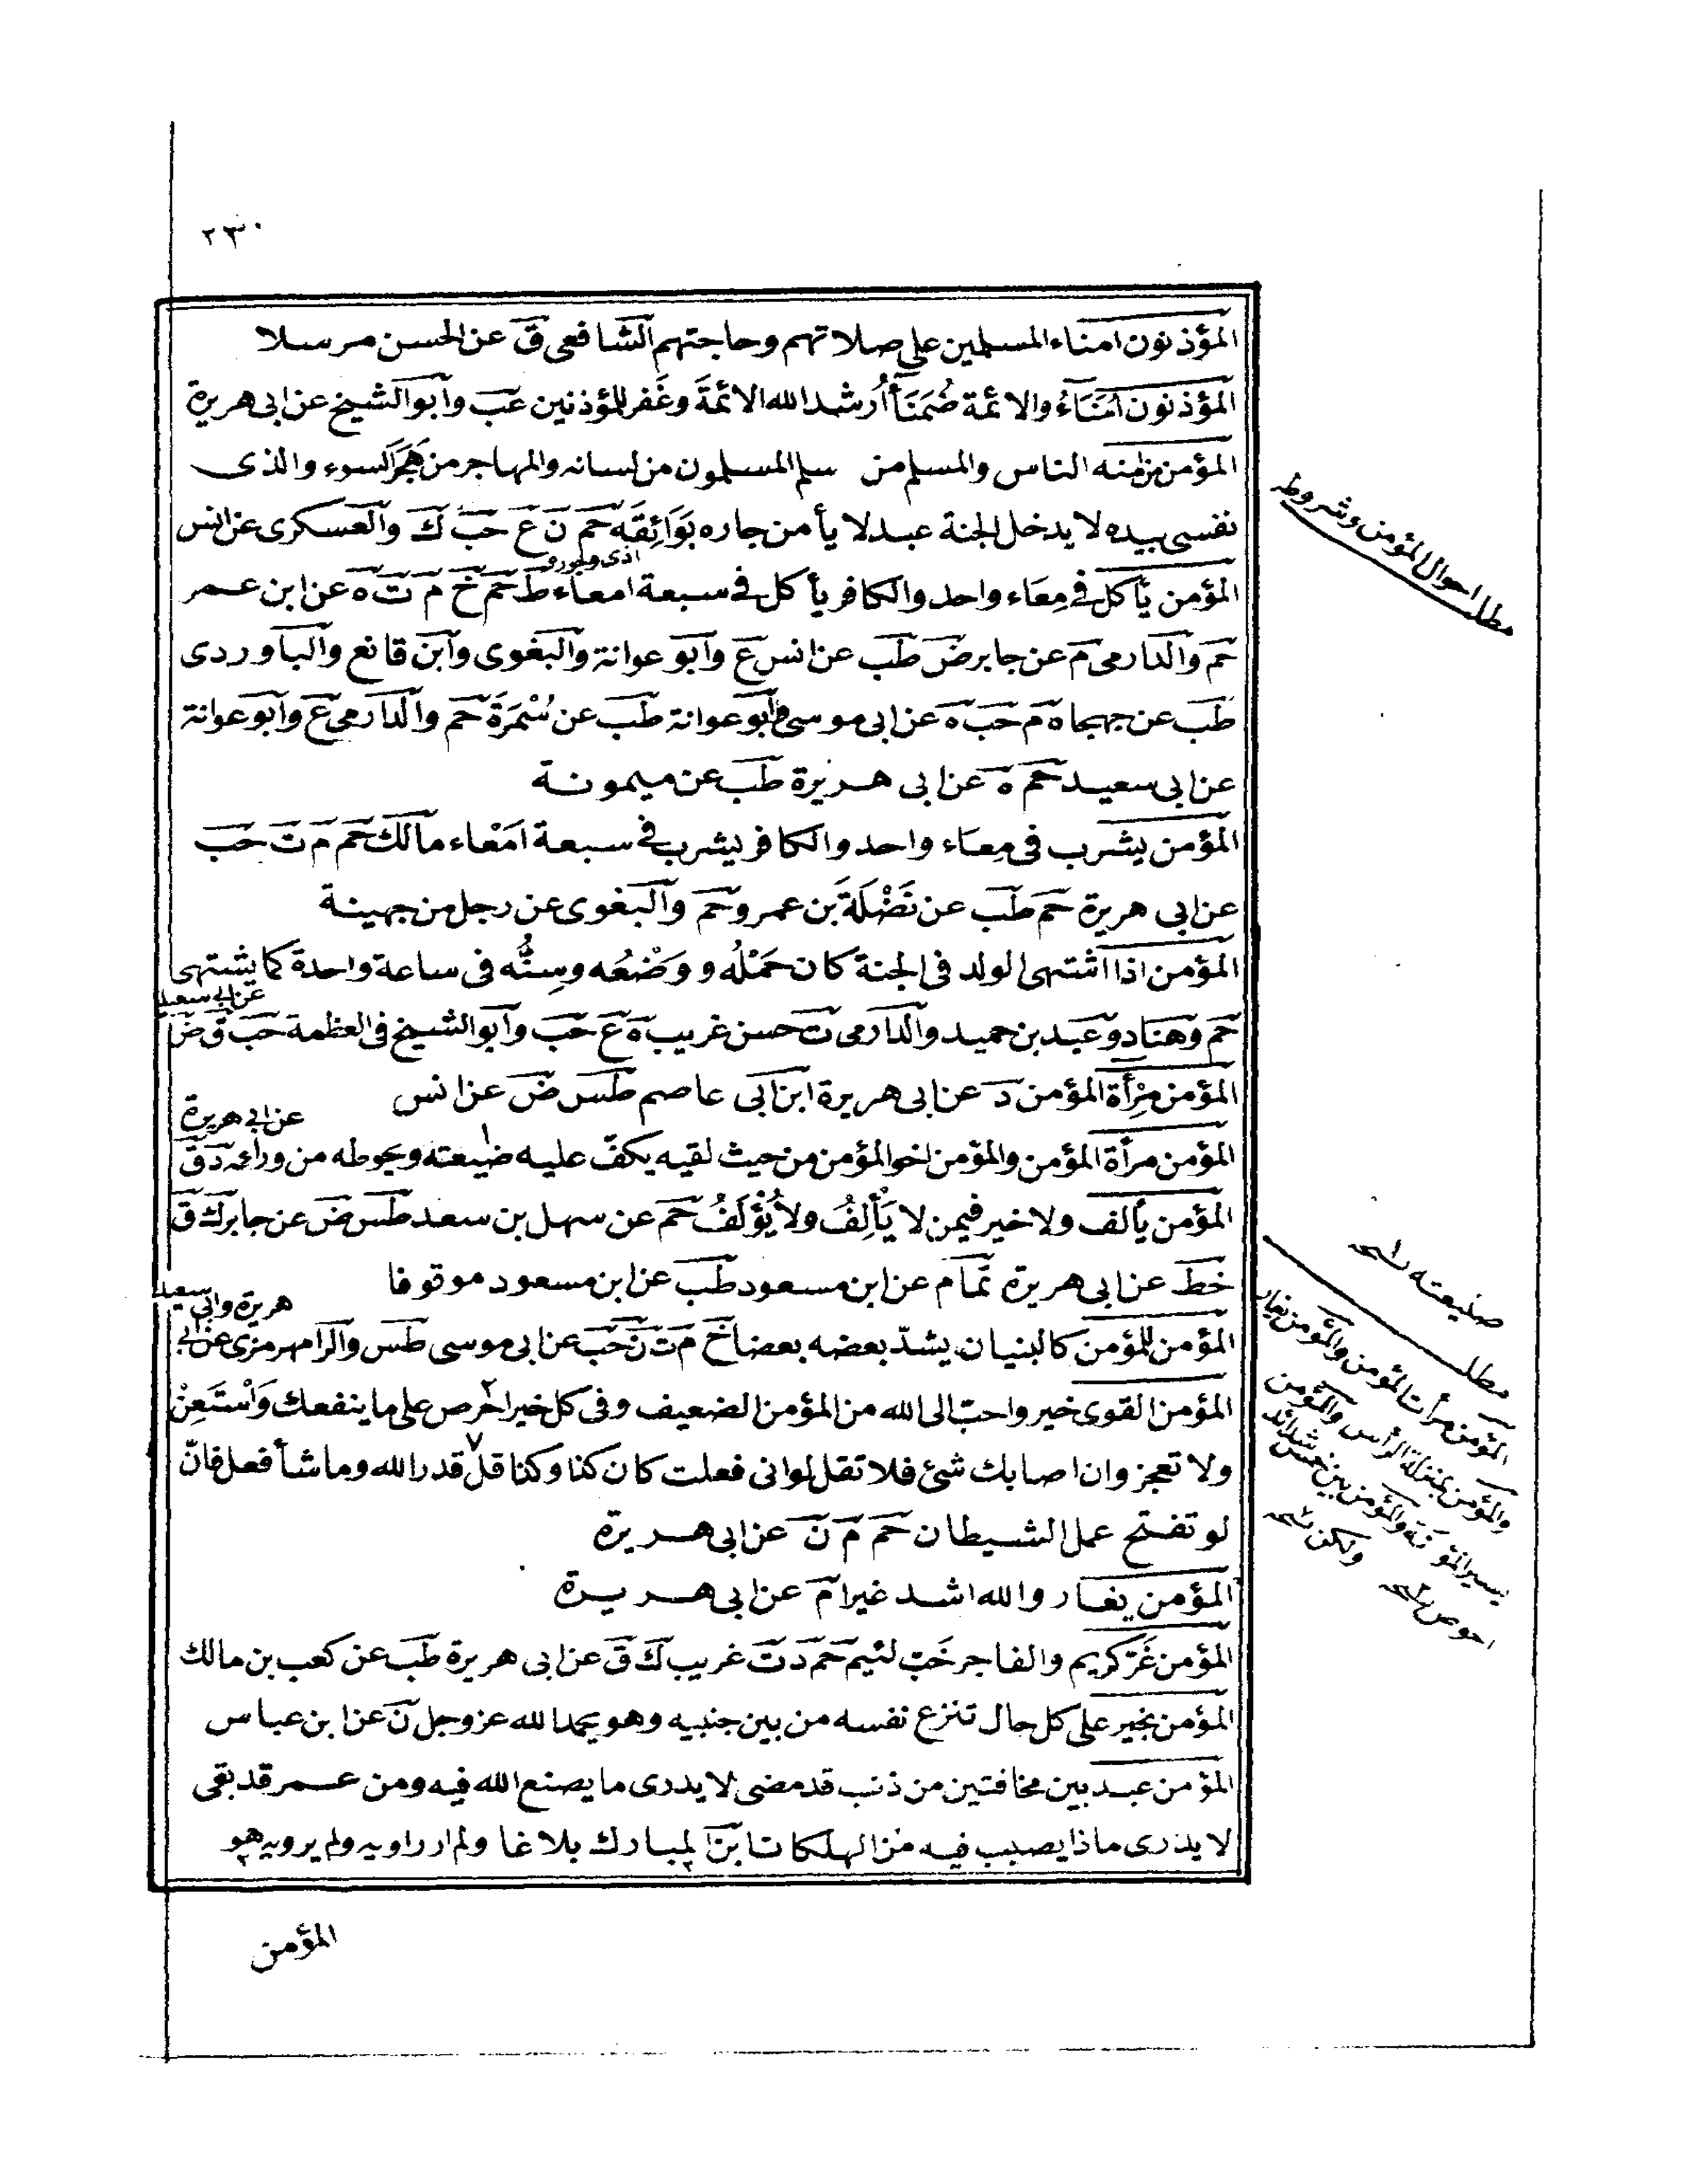 ٢٣٠
المؤذنون امناء المسلمين على صلاتهم وحاجتهم الشافعى ق عن الحسن مرسلا
المؤذنون اُمَنَآءُ والائمة ضُمَنَآءُ اَرشد الله الائمةَ وغَفر للمؤذنين عب وابو الشيخ عن ابى هريرة
المؤمن من امنه الناس والمسلم من سلم المسلمون من لسانه والمهاجر من هَجَرَ السوء والذى
نفسى بيده لا يدخل الجنة عبد لا يأمن جاره بَوَائِقَه حم ن ع حب ك والعسكرى عن انس
المؤمن يأكل فى مِعَاء واحد والكافر يأكل فى سبعة امعاء ط حم خ م ت ه عن ابن عمر
حم والدارمى م عن جابر ض طب عن انس ع وابو عوانة والبغوى وابن قانع والباوردى
طب عن جهجاه م حب ه عن ابى موسى وابو عوانة طب عن سُمْرَةَ حم والدارمى ع وابو عوانة
عن ابى سعيد حم ه عن ابى هريرة طب عن ميمونة
المؤمن يشرب فى مِعَاء واحد والكافر يشرب فى سبعة اَمْعاء مالك حم م ت حب
عن ابى هريرة حم طب عن نَضْلَةَ بن عمرو حم والبغوى عن رجل من جهينة
المؤمن اذا اشتهى الولد فى الجنة كان حَمْلُه و وَضْعُه وسِنُّه فى ساعة واحدة كما يشتهى
حم وهناد وعبد بن حميد والدارمى ت حسن غريب ه ع حب وابو الشيخ فى العظمة حب ق ض عن ابى سعيد
المؤمن مِرْأَة المؤمن د عن ابى هريرة ابن ابى عاصم طس ض عن انس
المؤمن مرأة المؤمن والمؤمن اخو المؤمن من حيث لقيه يكفّ عليه ضيعته ويحوطه من ورائه د ق عن ابى هريرة
المؤمن يألف ولا خير فيمن لا يَأْلِفُ ولا يُؤْلَفُ حم عن سهل بن سعد طس ض عن جابر ك ق
خط عن ابى هريرة تمام عن ابن مسعود طب عن ابن مسعود موقوفا
المؤمن للمؤمن كالبنيان يشدّ بعضه بعضا خ م ت ن حب عن ابى موسى طس والرامهرمزى عن ابى هريرة وابى سعيد
المؤمن القوى خير واحبّ الى الله من المؤمن الضعيف وفى كل خير احرص على ما ينفعك وَاسْتَعِنْ
ولا تعجز وان اصابك شئ فلا تقل لو انى فعلت كان كذا وكذا قل قدر الله وما شأ فعل فانّ
لو تفتح عمل الشيطان حم م ن عن ابى هريرة
المؤمن يغار والله اشد غيرا م عن ابى هريرة
المؤمن غَرّ كريم والفاجر خَبّ لئيم حم د ت غريب ك ق عن ابى هريرة طب عن كعب بن مالك
المؤمن بخير على كل حال تنزع نفسه من بين جنبيه وهو يحمد الله عز وجل ن عن ابن عباس
المؤمن عبد بين مخافتين من ذنب قد مضى لا يدرى ما يصنع الله فيه ومن عمر قد بقى
لا يدرى ماذا يصيب فيه من الهلكات ابن المبارك بلاغا ولم ار راويه ولم يرويه هو
المؤمن
مطلب احوال المؤمن وشروطه
صنيعته
مطلب
المؤمن مرأت المؤمن والمؤمن يغار
والمؤمن بمنزلة الرأس والمؤمن
يسير المؤنة والمؤمن بين خمس شدائد
ولكن
احوص